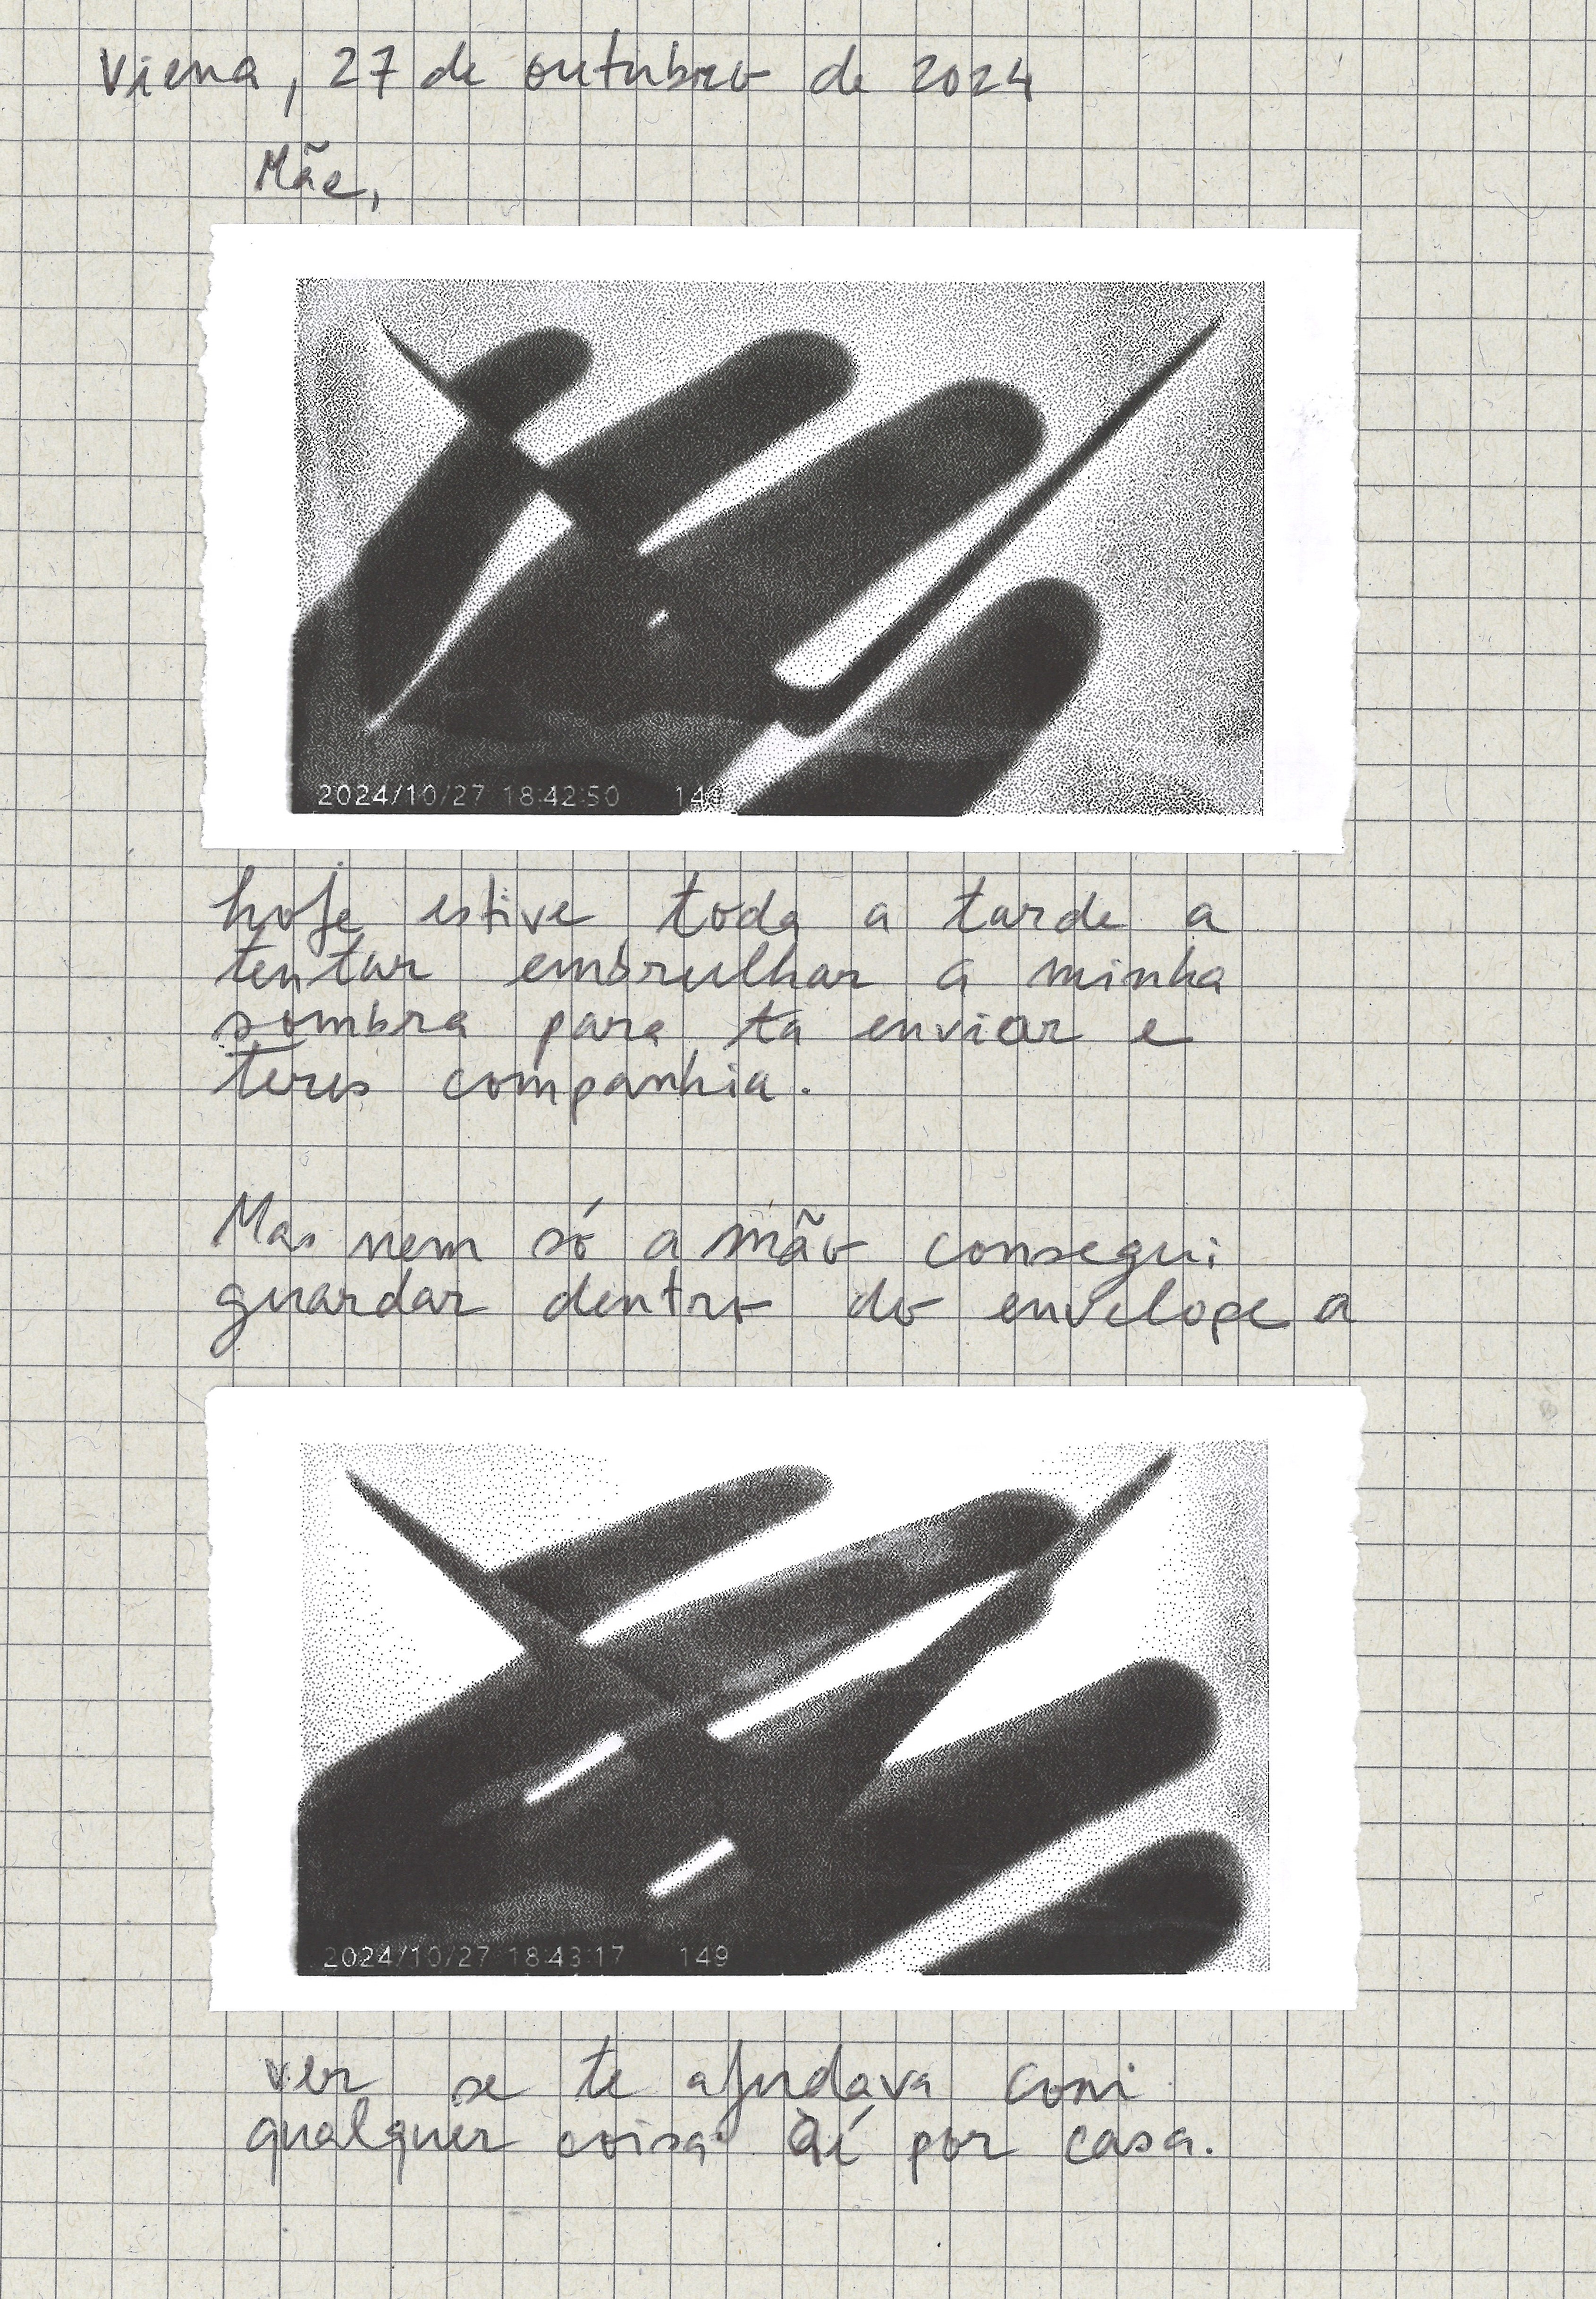 Viena, 27 de outubro de 2024
Mãe,
2024/10/27 18:42:50 149
hoje estive toda a tarde a
tentar embrulhar a minha
sombra para ta enviar e
teres companhia.
Mas nem só a mão consegui
guardar dentro do envelope a
2024/10/27 18:43:17 149
ver se te ajudava com
qualquer coisa aí por casa.